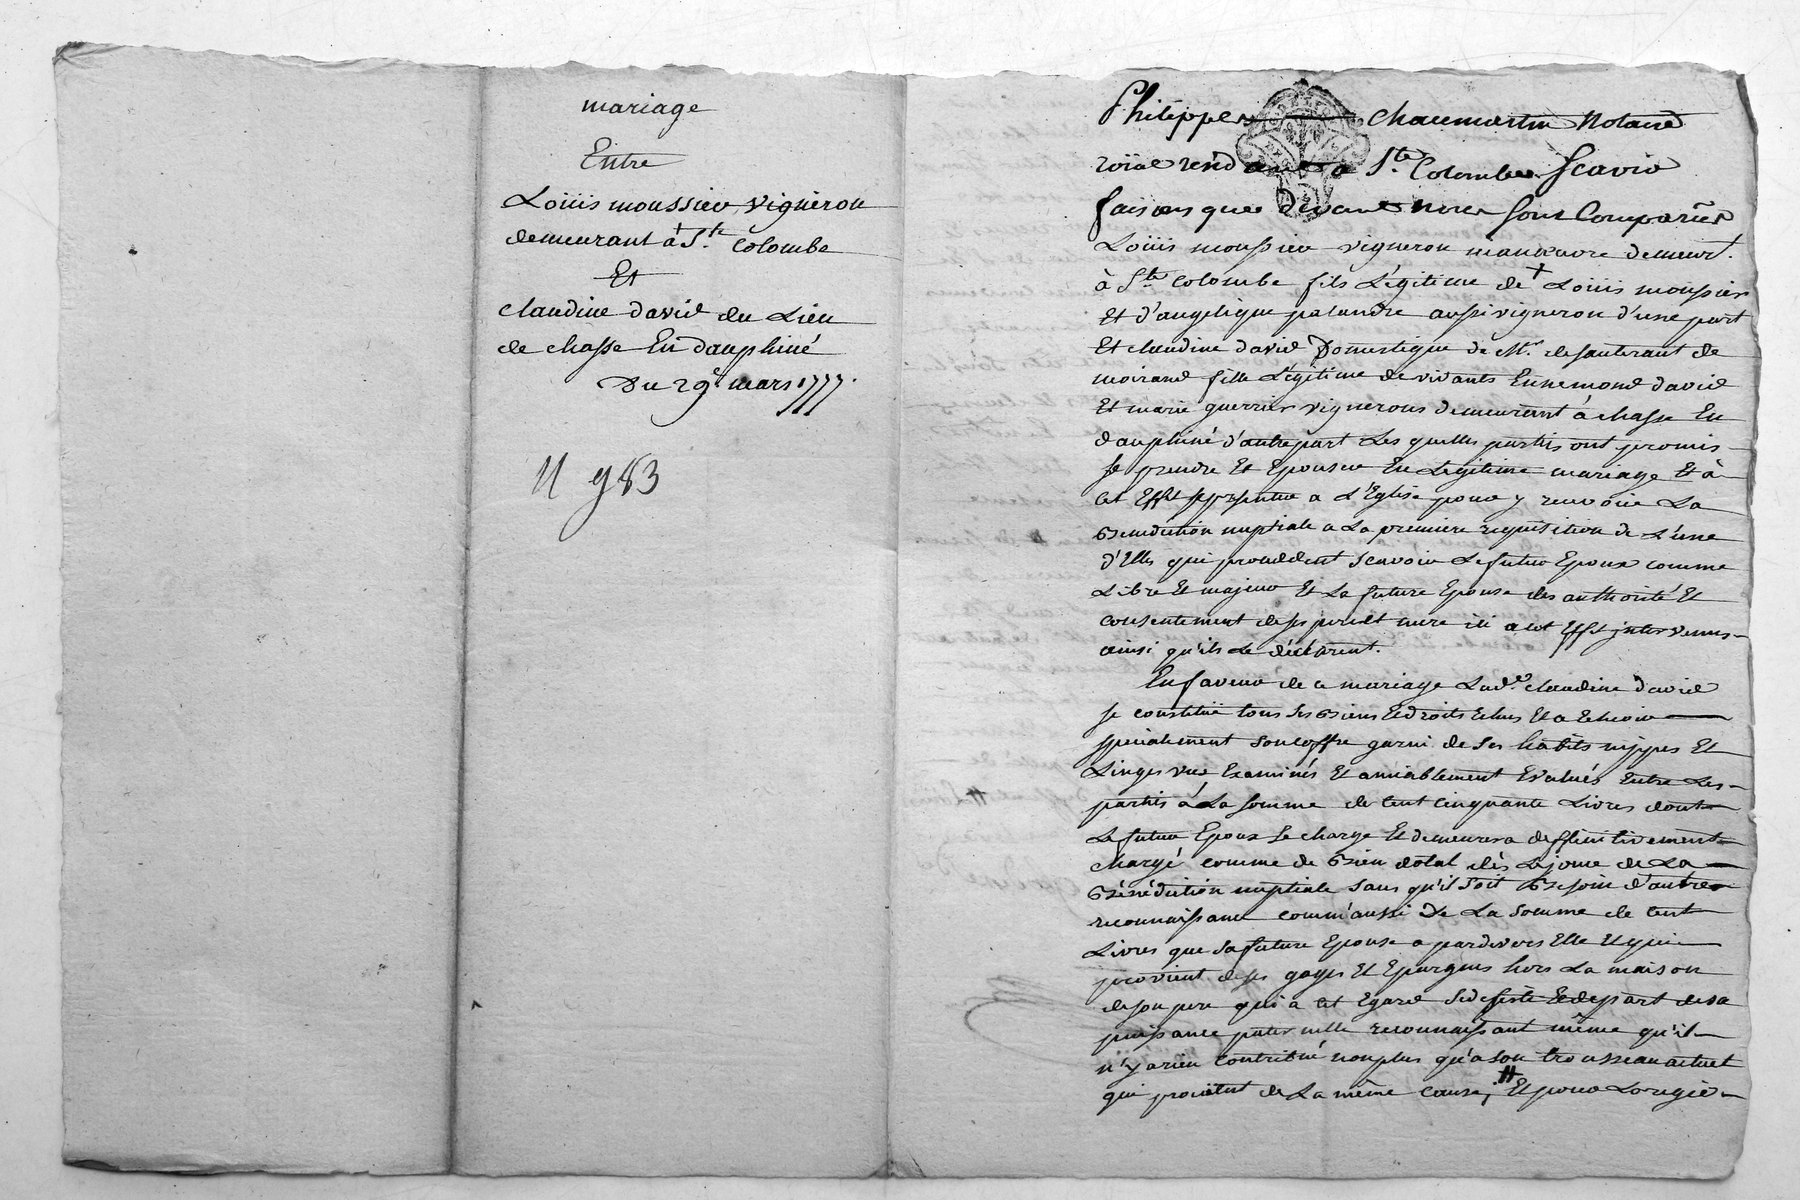 mariage
Entre
Loüis moussier vigneron
demeurant à S.te Colombe
Et
claudine david du Lieu
de chasse En dauphiné
Du 29.e mars 1777.
983
Philippe Chaumartin Notaire
roïal résidant a S.te Colombe Scavoir
faisons que devant nous sont Comparus
Loüis moussier vigneron manœuvre demeurt.
à S.te Colombe fils Légitime de Loüis moussier
Et d'angelique palandre aussi vigneron d'une part
Et claudine david Domestique de Mr. de
moirand fille Légitime de vivants Ennemond david
Et marie guerrier vignerons demeurant à chasse En
dauphiné d'autre part Les quelles parties ont promis
se prendre Et Epouser En Légitime mariage Et à
cet Effet se présenter a L'Eglise pour y recevoir La
Benediction nuptiale a La premiere requisition de L'une
d'Elles qui procedent scavoir Le futur Epoux comme
Libre Et majeur Et La future Epouse des authorité Et
consentement de ses pere et mere ici a cet Effet intervenus
ainsi qu'ils Le déclarent.
En faveur de ce mariage Lad.e claudine david
se constituë tous ses Biens Et droits Echus Et a Echeoir
specialement son coffre garni de ses habits nippes Et
Linges vus Examinés Et amiablement Evalués Entre Les
parties à La somme de Cent cinquante Livres dont
Le futur Epoux se charge Et demeurera deffinitivement
chargé comme de Bien dotal dès Le jour de La
Bénédiction nuptiale sans qu'il soit Besoin d'autre
reconnaissance comm'aussi de La somme de Cent
Livres que sa future Epouse a pardevers Elle Et qui
provient de ses gages Et Epargnes hors La maison
de son pere qui a cet Egard se desiste Et depart de sa
puissance paternelle reconnaissant même qu'il
n'y a rien contribué non plus qu'a son trousseau actuel
qui provient de La même cause, # Et pour